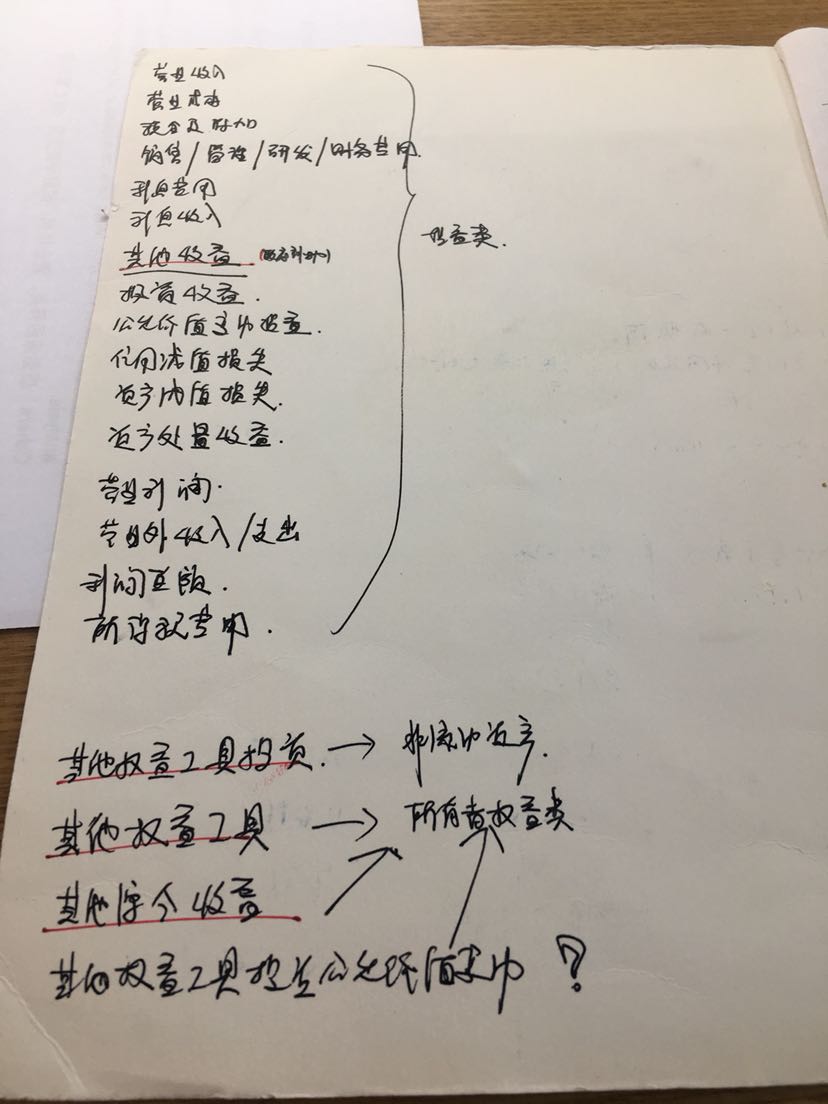 营业收入
营业成本
税金及附加
销售/管理/研发/财务费用.
利息费用
利息收入
其他收益 (政府补助)
投资收益.
公允价值变动损益.
信用减值损失
资产减值损失.
资产处置收益.
营业利润.
营业外收入/支出
利润总额.
所得税费用.
损益类.
其他权益工具投资. → 非流动资产.
其他权益工具 → 所有者权益类
其他综合收益
其他权益工具投资公允价值变动 ?